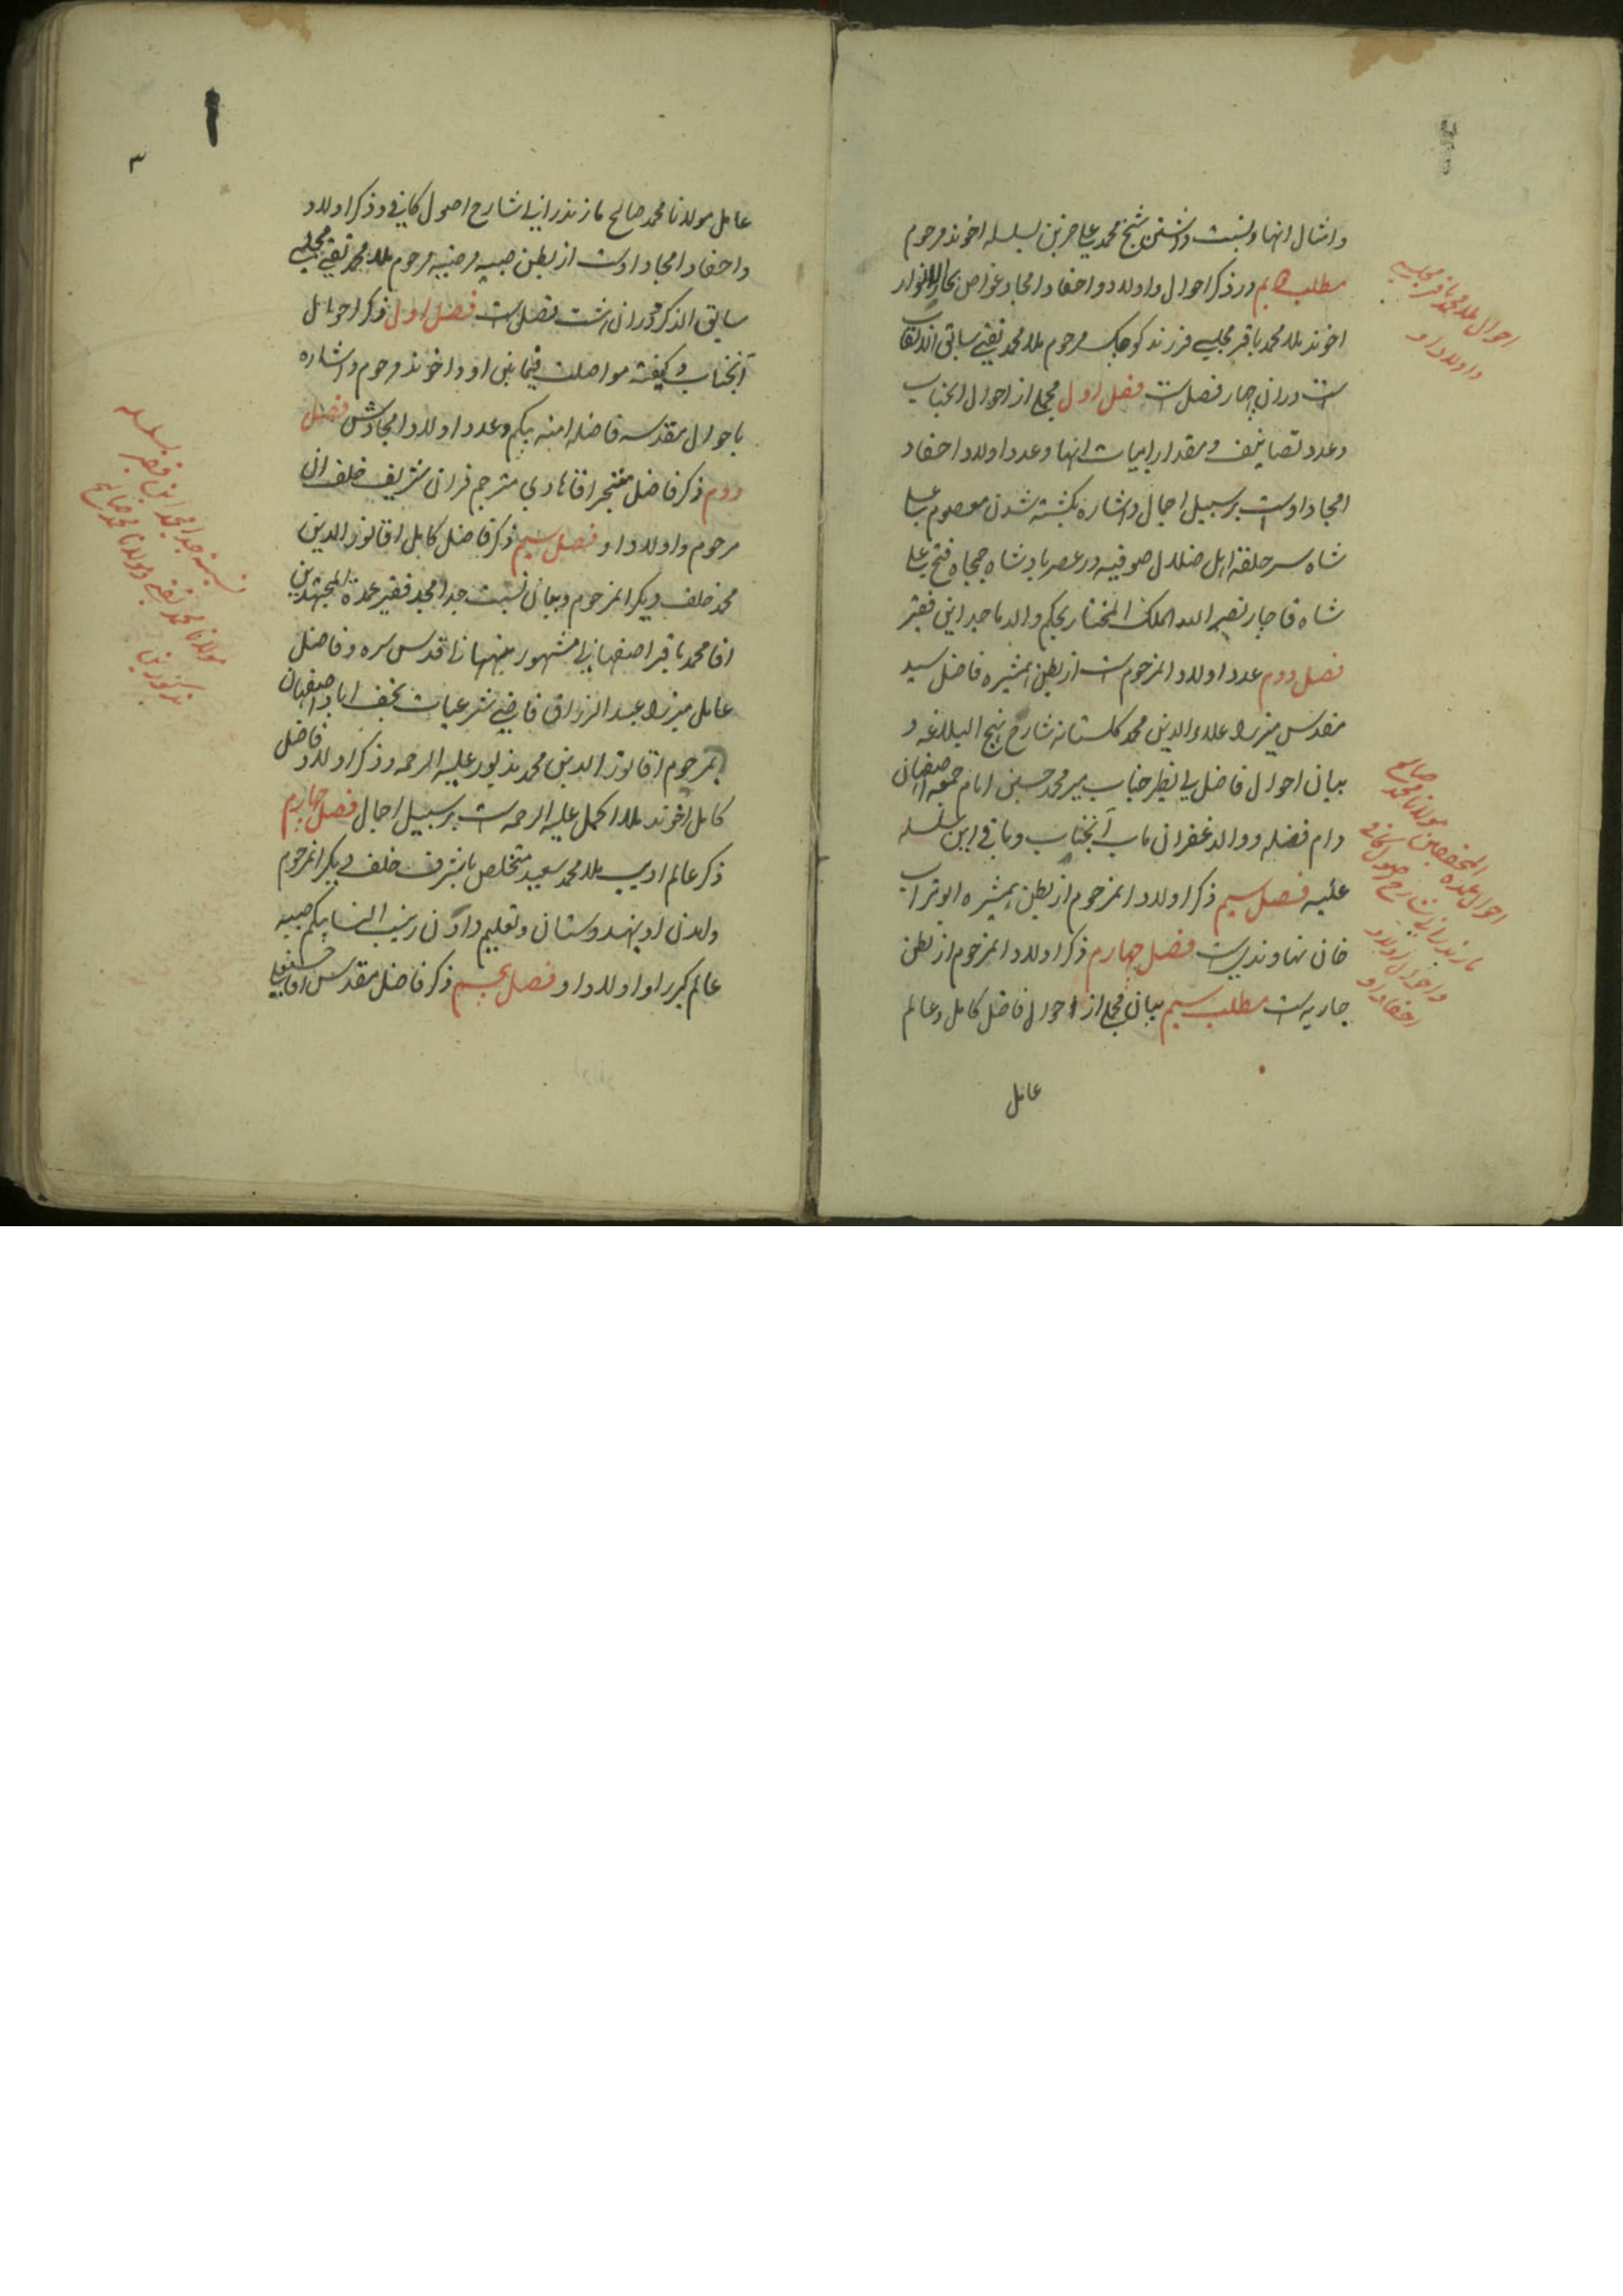 وامثال انها ونسبت داشتن شیخ محمد علی حزین بسلسله اخوند مرحوم
مطلب دویم در ذکر احوال و اولاد و احفاد امجاد غواص بحار الانوار
اخوند ملا محمد باقر مجلسی فرزند کوچک مرحوم ملا محمد تقی سابق الالقاب
است و در ان چهار فصل است فصل اول مجملی از احوال انجناب
و عدد تصانیف و مقدار ابیات انها و عدد اولاد احفاد
امجاد اوست بر سبیل اجمال و اشاره بکشته شدن معصوم علی
شاه سر حلقه اهل ضلال صوفیه در عصر پادشاه جمجاه فتح علی
شاه قاجار نصیر الله الملک المختار بحکم والد ماجد این فقیر
فصل دویم عدد اولاد انمرحوم است از بطن همشیره فاضل سید
مقدس میرزا علاء الدین محمد کلستانه شارح نهج البلاغه و
بیان احوال فاضل بی نظیر جناب میر محمد حسین امام جمعه اصفهان
دام فضله و والد غفران ماب آنجناب و باقی این سلسله
علیه فصل سیم ذکر اولاد انمرحوم از بطن همشیره ابو تراب
خان نهاوندیست فصل چهارم ذکر اولاد انمرحوم از بطن
جاریه است مطلب سیم بیان مجملی از احوال فاضل کامل و عالم
عامل
احوال ملا محمد باقر مجلسی
و اولاد او
احوال عمده المحققین مولانا محمد صالح
مازندرانی شارح اصول کافی
و احوال اولاد
احفاد او
۳
عامل مولانا محمد صالح مازندرانی شارح اصول کافی و ذکر اولاد
و احفاد امجاد اوست از بطن صبیه مرضیه مرحوم ملا محمد تقی مجلسی
سابق الذکر و در ان هشت فصل است فصل اول ذکر احوال
آنجناب و کیفیة مواصلت فیما بین او و اخوند مرحوم و اشاره
باحوال مقدسه فاضله امنه بیکم و عدد اولاد امجادش فصل
دویم ذکر فاضل متبحر اقا هادی مترجم قران شریف خلف ان
مرحوم و اولاد او فصل سیم ذکر فاضل کامل اقا نور الدین
محمد خلف دیکر انمرحوم و بیان نسبت جد امجد فقیر عمدة المجتهدین
اقا محمد باقر اصفهانی مشهور ببهبهانی قدس سره و فاضل
عامل میرزا عبد الرزاق قاضی شرعیات نجف اباد اصفهان
بمرحوم اقا نور الدین محمد مذبور علیه الرحمه و ذکر اولاد فاضل
کامل اخوند ملا اکمل علیه الرحمه است بر سبیل اجمال فصل چهارم
ذکر عالم ادیب ملا محمد سعید متخلص باشرف خلف دیکر انمرحوم
و امدن او بهندوستان و تعلیم دادن زیب النسا بیکم صبیه
عالم کیر را و اولاد او فصل پنجم ذکر فاضل مقدس اقا حسنعلی
نسبت جد امجد این فقیر بسلسله
مولانا محمد تقی و مولانا محمد صالح
مذکورین